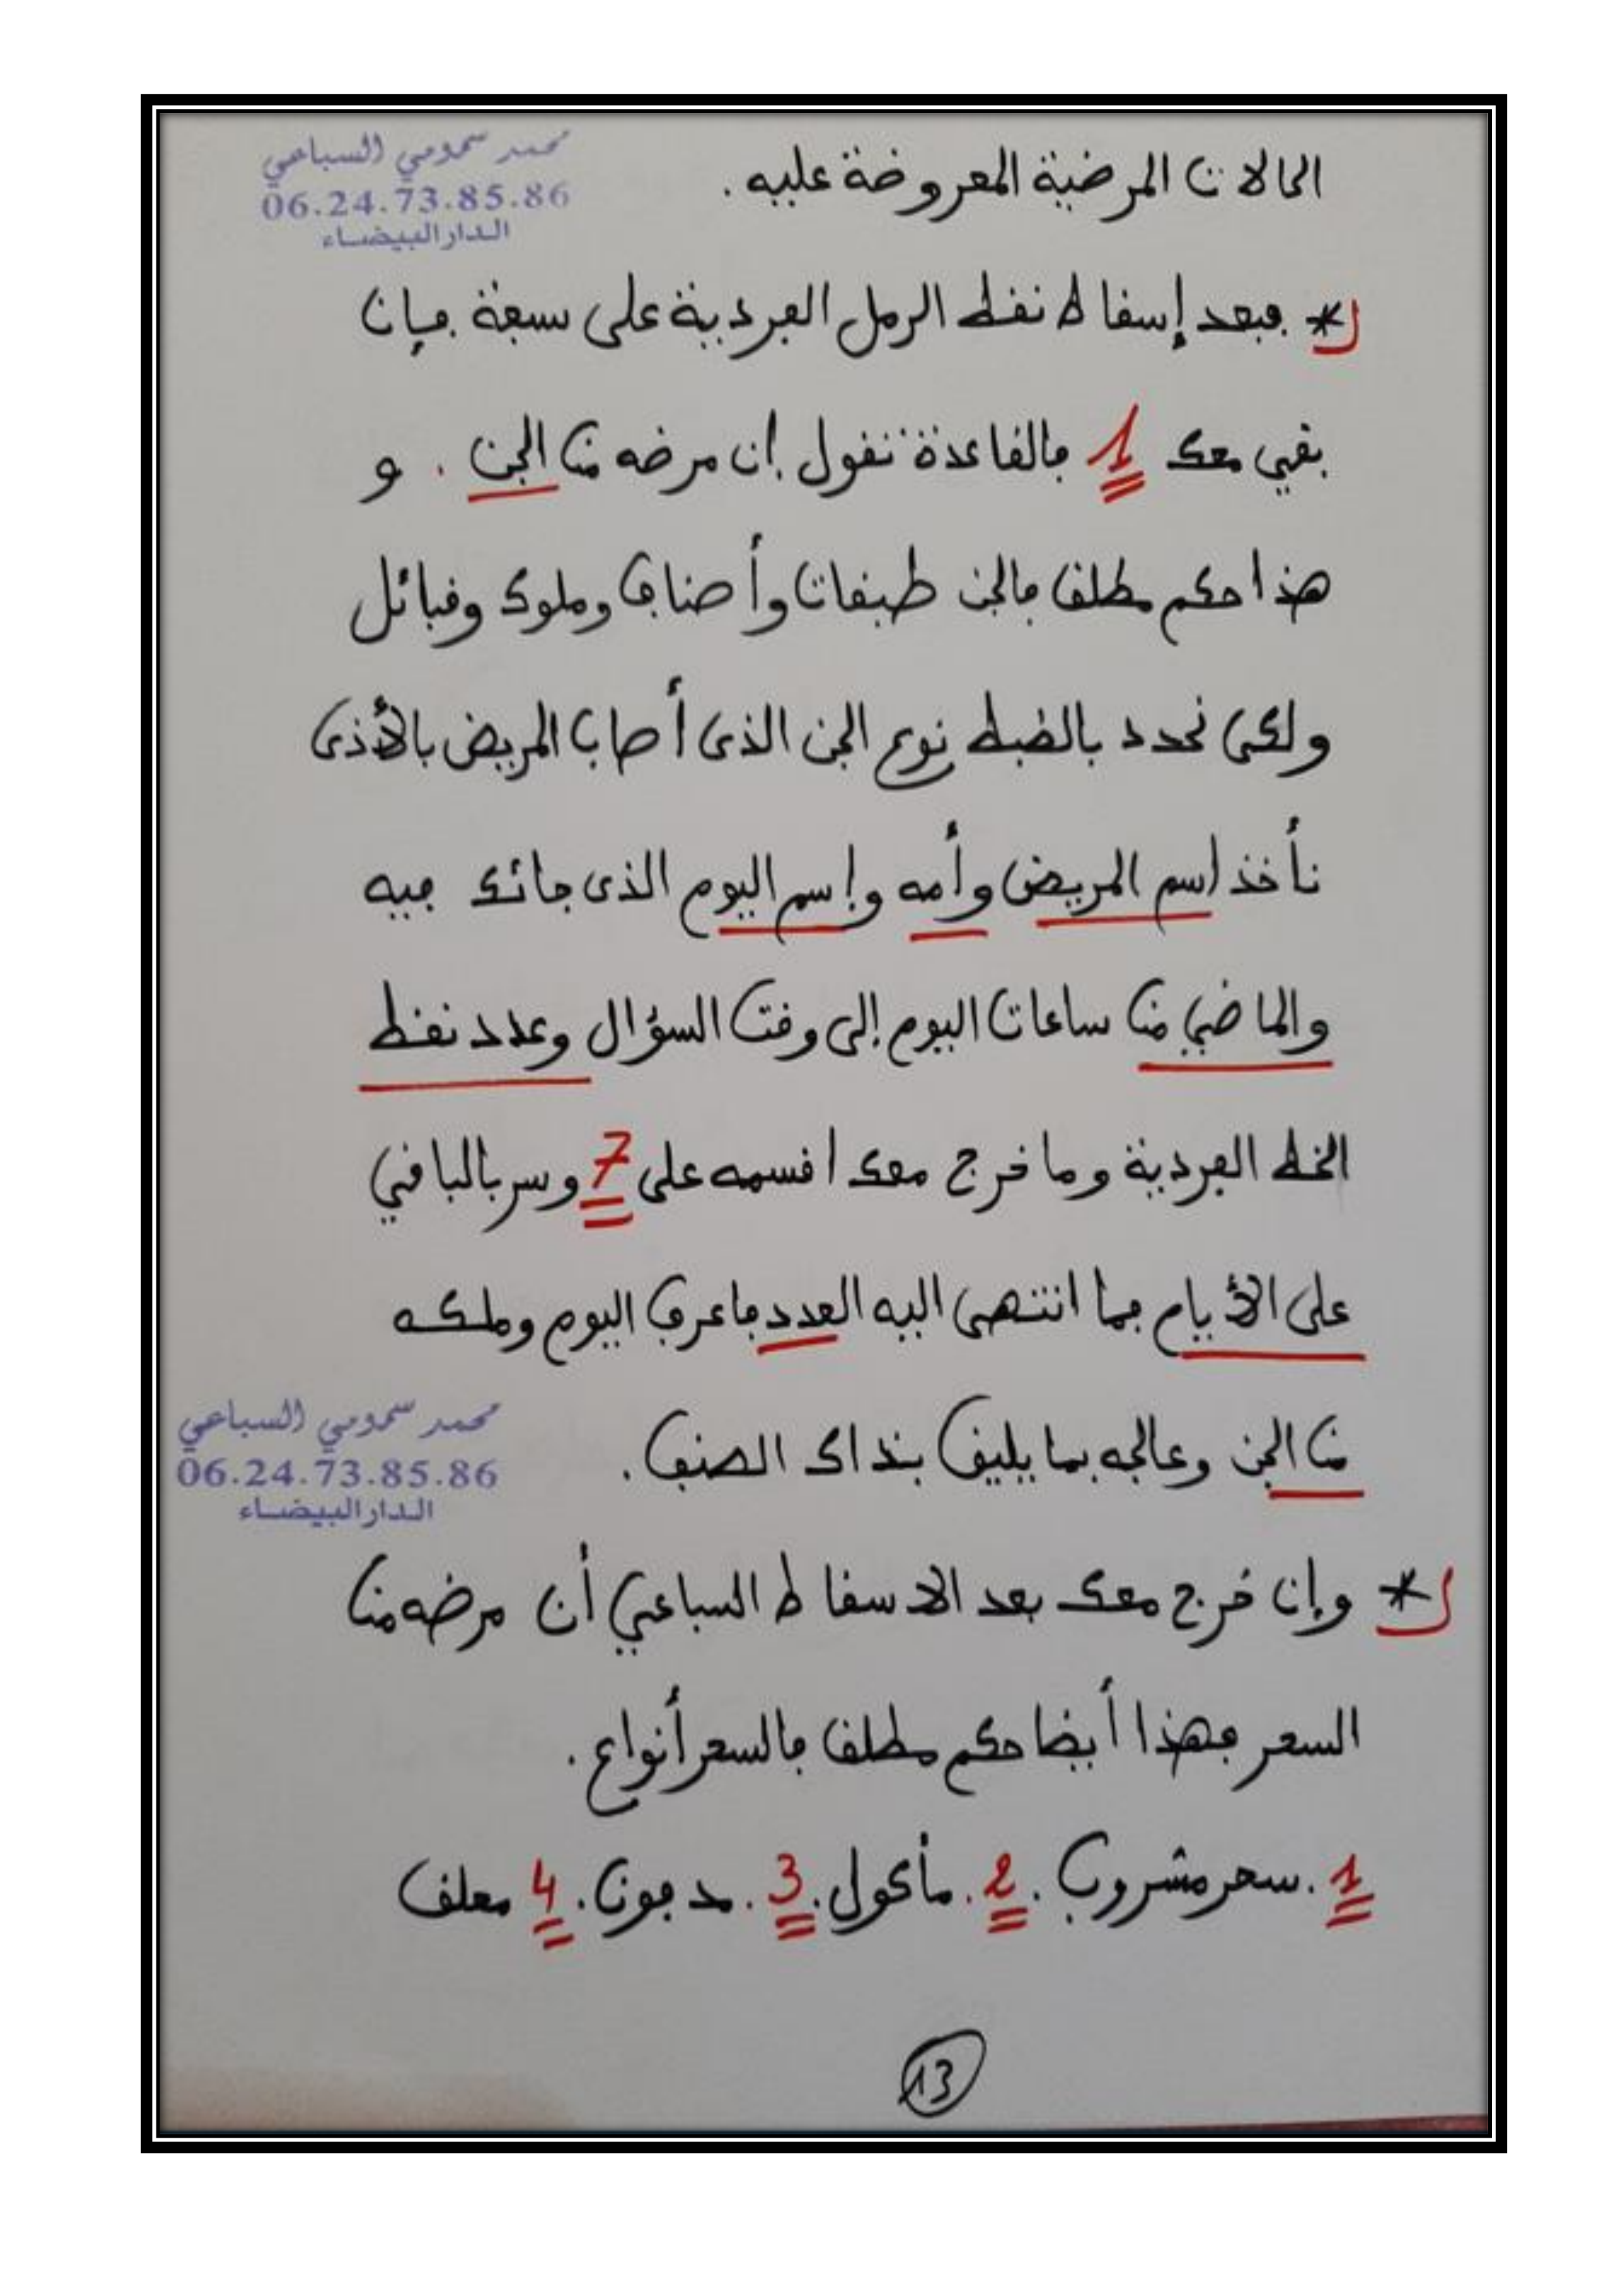 محمد سمومي السباعي
06.24.73.85.86
الدار البيضاء
الحالات المرضية المعروضة عليه .
* فبعد إسقاط نقط الرمل الفردية على سبعة فإن
بقي معك 1 فالقاعدة تقول أن مرضه من الجن . و
هذا حكم مطلق فالجن طبقات وأصناف وملوك وقبائل
ولكي نحدد بالضبط نوع الجن الذى أصاب المريض بالأذى
نأخذ اسم المريض وأمه وإسم اليوم الذى جائك فيه
والماضي من ساعات اليوم إلى وقت السؤال وعدد نقط
الخط الفردية وما خرج معك اقسمه على 7 وسر بالباقي
على الأيام فما انتهى اليه العدد فاعرف اليوم وملكه
من الجن وعالجه بما يليق بذاك الصنف .
محمد سمومي السباعي
06.24.73.85.86
الدار البيضاء
* وإن خرج معك بعد الاسقاط السباعي أن مرضه من
السحر فهذا أيضا حكم مطلق فالسحر أنواع .
1 . سحر مشروب . 2 . مأكول . 3 . مدفون . 4 معلق
13